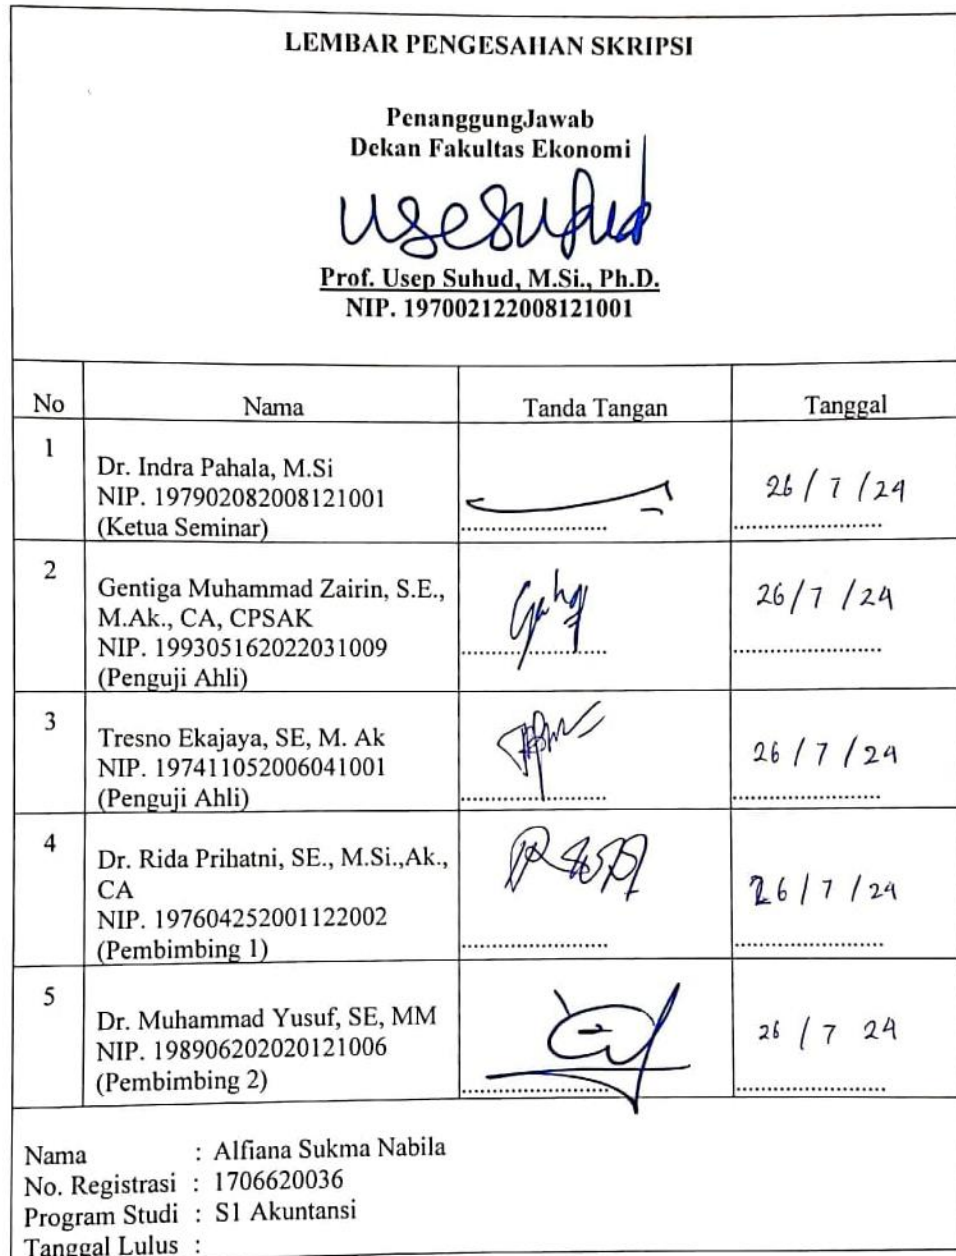 LEMBAR PENGESAHAN SKRIPSI
PenanggungJawab
Dekan Fakultas Ekonomi
usesuhud
Prof. Usep Suhud, M.Si., Ph.D.
NIP. 197002122008121001
No Nama Tanda Tangan Tanggal
1
Dr. Indra Pahala, M.Si
NIP. 197902082008121001
(Ketua Seminar)
26 / 7 / 24
2
Gentiga Muhammad Zairin, S.E.,
M.Ak., CA, CPSAK
NIP. 199305162022031009
(Penguji Ahli)
26/7 /24
3
Tresno Ekajaya, SE, M. Ak
NIP. 197411052006041001
(Penguji Ahli)
26 / 7 / 24
4
Dr. Rida Prihatni, SE., M.Si.,Ak.,
CA
NIP. 197604252001122002
(Pembimbing 1)
26 / 7 / 24
5
Dr. Muhammad Yusuf, SE, MM
NIP. 198906202020121006
(Pembimbing 2)
26 / 7 24
Nama : Alfiana Sukma Nabila
No. Registrasi : 1706620036
Program Studi : S1 Akuntansi
Tanggal Lulus :